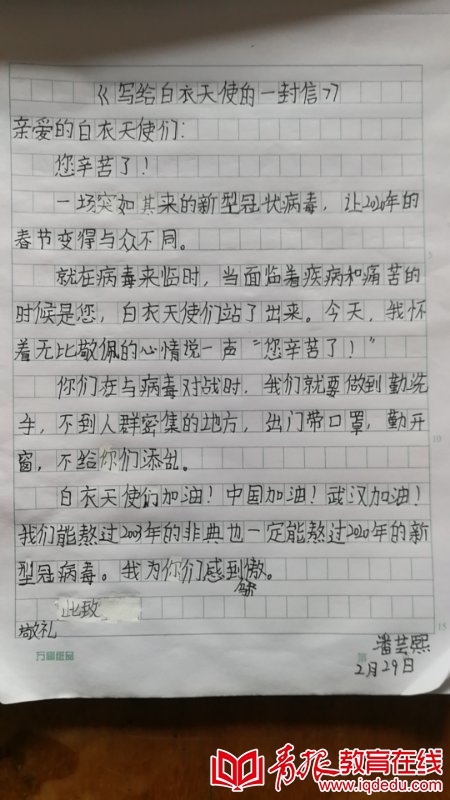 《写给白衣天使的一封信》
亲爱的白衣天使们:
您辛苦了!
一场突如其来的新型冠状病毒，让2020年的
春节变得与众不同。
就在病毒来临时，当面临着疾病和痛苦的
时候是您，白衣天使们站了出来。今天，我怀
着无比敬佩的心情说一声“您辛苦了!”
你们在与病毒对战时，我们就要做到勤洗
手，不到人群密集的地方，出门带口罩，勤开
窗，不给你们添乱。
白衣天使们加油!中国加油!武汉加油!
我们能熬过2003年的非典也一定能熬过2020年的新
型冠病毒。我为你们感到骄傲。
此致
敬礼
潘芸熙
2月29日
5
10
15
万嗣纸品
第
青报教育在线
www.iqdedu.com